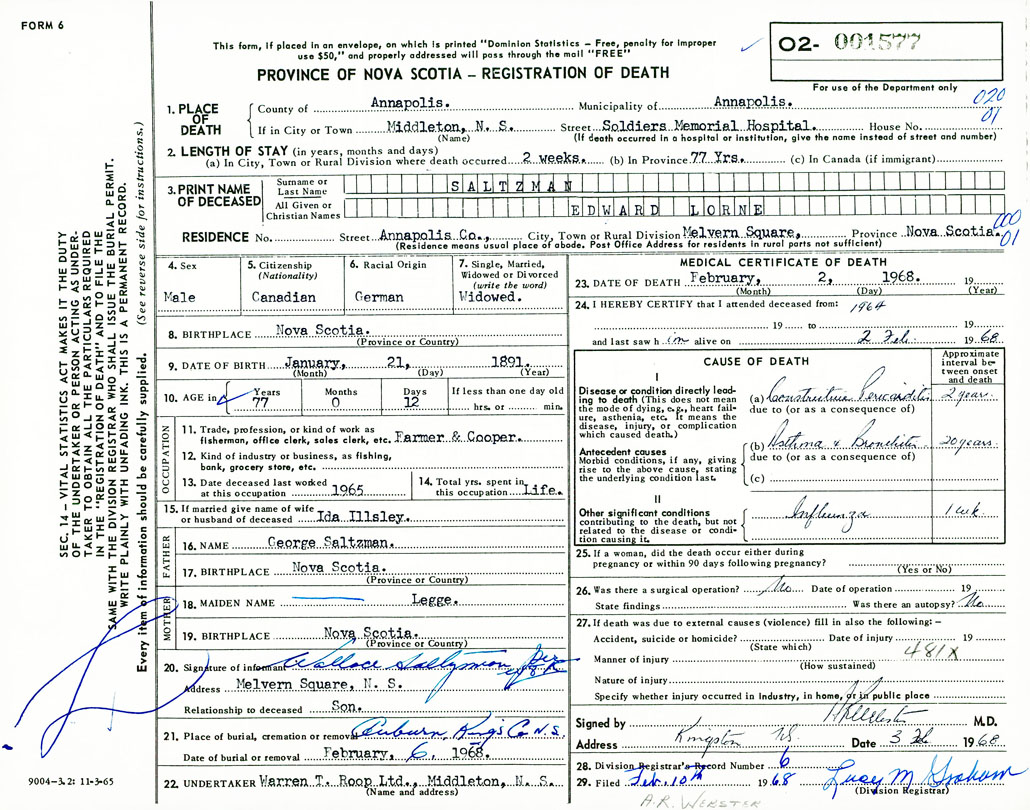 FORM 6
This form, if placed in an envelope, on which is printed "Dominion Statistics – Free, penalty for improper
use $50," and properly addressed will pass through the mail "FREE"
PROVINCE OF NOVA SCOTIA – REGISTRATION OF DEATH
O2- 001577
For use of the Department only
020
01
1. PLACE OF DEATH
County of Annapolis. Municipality of Annapolis.
If in City or Town Middleton, N. S. Street Soldiers Memorial Hospital. House No.
(Name) (If death occurred in a hospital or institution, give the name instead of street and number)
2. LENGTH OF STAY (in years, months and days)
(a) In City, Town or Rural Division where death occurred 2 weeks. (b) In Province 77 Yrs. (c) In Canada (if immigrant)
3. PRINT NAME OF DECEASED
Surname or Last Name SALTZMAN
All Given or Christian Names EDWARD LORNE
000
01
RESIDENCE No. Street Annapolis Co., City, Town or Rural Division Melvern Square, Province Nova Scotia.
(Residence means usual place of abode. Post Office Address for residents in rural parts not sufficient)
4. Sex
Male
5. Citizenship
(Nationality)
Canadian
6. Racial Origin
German
7. Single, Married,
Widowed or Divorced
(write the word)
Widowed.
8. BIRTHPLACE Nova Scotia.
(Province or Country)
9. DATE OF BIRTH January, 21, 1891.
(Month) (Day) (Year)
10. AGE in
Years Months Days If less than one day old
77 0 12 hrs. or min.
OCCUPATION
11. Trade, profession, or kind of work as
fisherman, office clerk, sales clerk, etc. Farmer & Cooper.
12. Kind of industry or business, as fishing,
bank, grocery store, etc.
13. Date deceased last worked
at this occupation 1965
14. Total yrs. spent in
this occupation Life.
15. If married give name of wife
or husband of deceased Ida Illsley.
FATHER
16. NAME George Saltzman.
17. BIRTHPLACE Nova Scotia.
(Province or Country)
MOTHER
18. MAIDEN NAME Legge.
19. BIRTHPLACE Nova Scotia.
(Province or Country)
20. Signature of informant Wallace Saltzman
Address Melvern Square, N. S.
Relationship to deceased Son.
21. Place of burial, cremation or removal Auburn, Kings Co N.S.
Date of burial or removal February, 6, 1968.
22. UNDERTAKER Warren T. Roop Ltd., Middleton, N. S.
(Name and address)
MEDICAL CERTIFICATE OF DEATH
23. DATE OF DEATH February, 2, 1968. 19
(Month) (Day) (Year)
24. I HEREBY CERTIFY that I attended deceased from: 1964
19 to 19
and last saw h im alive on 2 Feb. 1968
CAUSE OF DEATH
Approximate
interval be-
tween onset
and death
I
Disease or condition directly lead-
ing to death (This does not mean
the mode of dying, e.g., heart fail-
ure, asthenia, etc. It means the
disease, injury, or complication
which caused death.)
(a) Constrictive Pericarditis 2 years.
due to (or as a consequence of)
Antecedent causes
Morbid conditions, if any, giving
rise to the above cause, stating
the underlying condition last.
(b) Asthma & Bronchitis 20 years.
due to (or as a consequence of)
(c)
II
Other significant conditions
contributing to the death, but not
related to the disease or condi-
tion causing it.
Influenza 1 wk.
25. If a woman, did the death occur either during
pregnancy or within 90 days following pregnancy?
(Yes or No)
26. Was there a surgical operation? No Date of operation 19
State findings Was there an autopsy? No
27. If death was due to external causes (violence) fill in also the following: –
Accident, suicide or homicide? Date of injury 19
(State which)
481X
Manner of injury
(How sustained)
Nature of injury
Specify whether injury occurred in Industry, in home, or in public place
Signed by M.D.
Address Kingston NS. Date 3 Feb 1968
28. Division Registrar's Record Number 6
29. Filed Feb. 10th 1968 Lucy M Graham
(Division Registrar)
A.R. WEBSTER
SEC. 14 – VITAL STATISTICS ACT MAKES IT THE DUTY
OF THE UNDERTAKER OR PERSON ACTING AS UNDER-
TAKER TO OBTAIN ALL THE PARTICULARS REQUIRED
IN THE "REGISTRATION OF DEATH" AND TO FILE THE
SAME WITH THE DIVISION REGISTRAR WHO SHALL ISSUE THE BURIAL PERMIT.
WRITE PLAINLY WITH UNFADING INK. THIS IS A PERMANENT RECORD.
Every item of information should be carefully supplied. (See reverse side for instructions.)
9004-3.2: 11-3-65